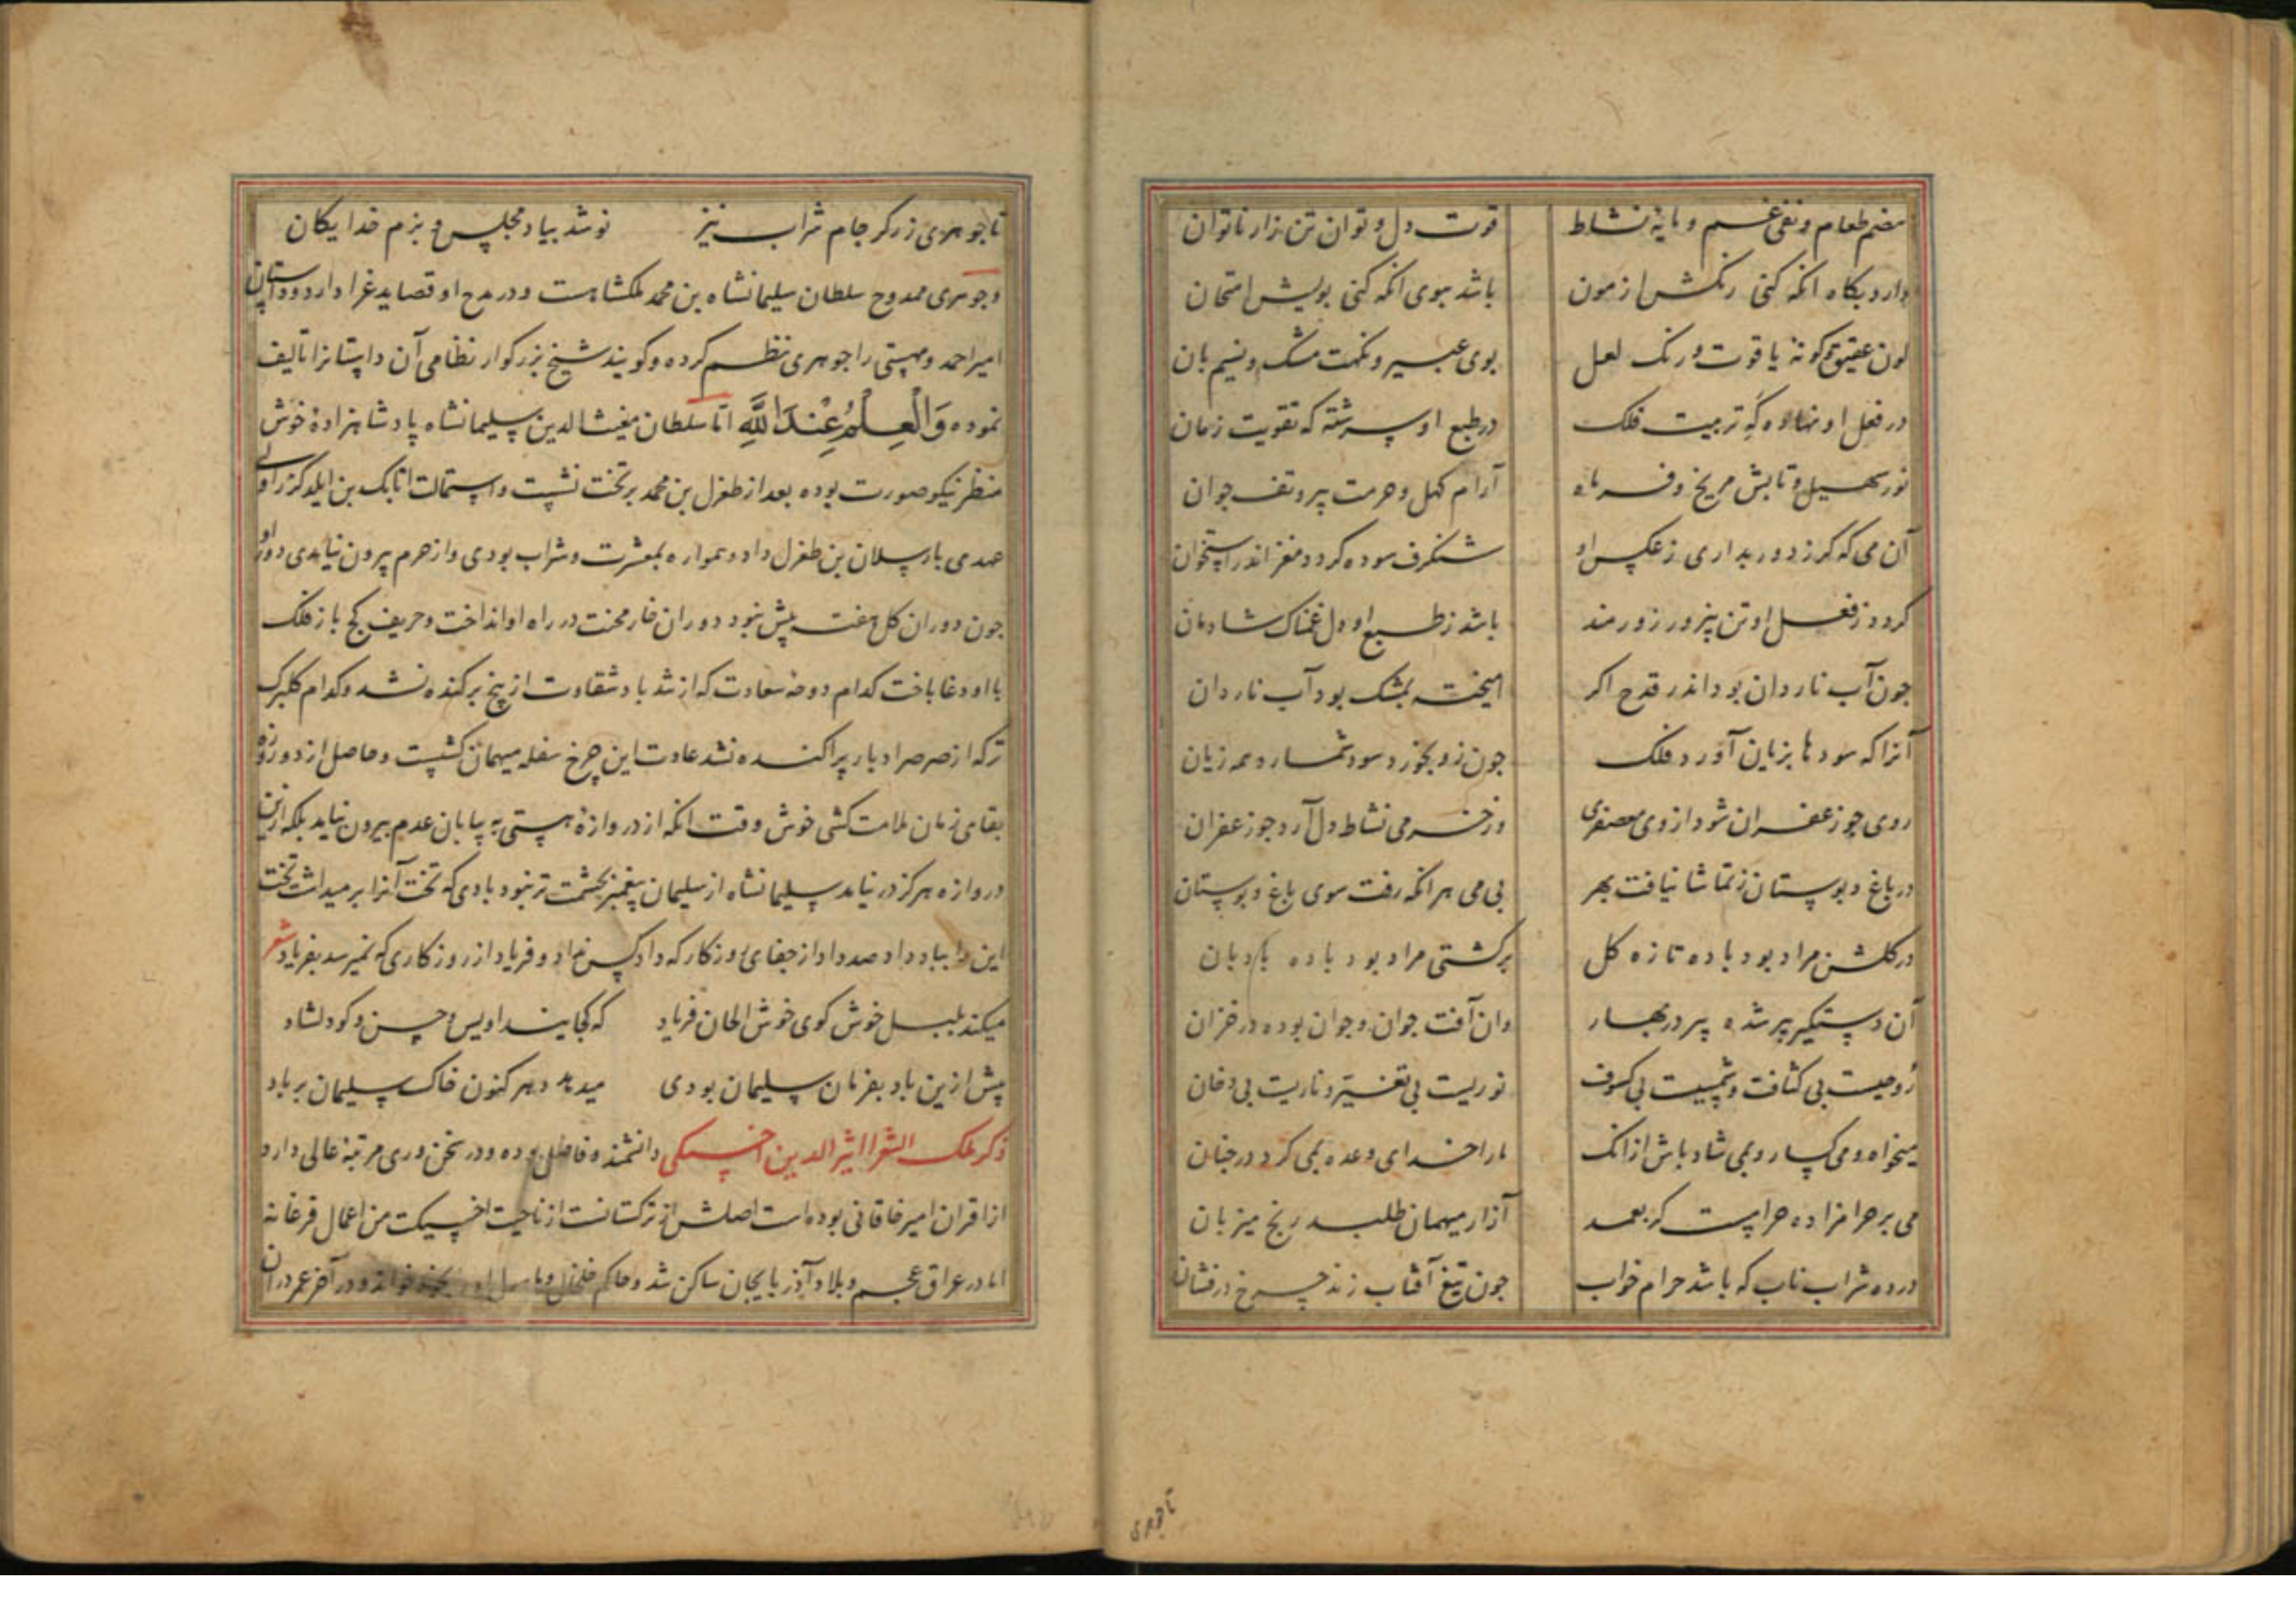 هضم طعام و نفی غم و مایهٔ نشاط قوت دل و توان تن زار ناتوان
دارد بکاه انکه کنی رنکش ازمون باشد ببوی انکه کنی بویش امتحان
لون عقیق و کونهٔ یاقوت و رنک لعل بوی عبیر و نکهت مشک و نسیم بان
در فعل او نهاده که تربیت فلک در طبع او سرشته که تقویت زمان
نور سهیل و تابش مریخ و فر ماه آرام کهل و حرمت پیر و تف جوان
آن می که کر ز دور بداری ز عکس او شنکرف سوده کردد مغز اندر استخوان
کردد ز فعل او تن پیزور زورمند باشد ز طبع او دل غمناک شادمان
جون آب ناردان بود اندر قدح اکر امیخته بمشک بود آب ناردان
آنرا که سودها بزیان آورد فلک جون زو بخورد سود شمارد همه زیان
روی جو زعفران شود از وی معصفری وز خرمی نشاط دل آرد جو زعفران
در باغ و بوستان ز تماشا نیافت بهر بی می هر انکه رفت سوی باغ و بوستان
در کلشن مراد بود باده تازه کل بر کشتی مراد بود باده بادبان
آن دستکیر پیر شده پیر در بهار وان آفت جوان و جوان بوده در خزان
روحیست بی کثافت و شمسیت بی کسوف نوریست بی تغیر و ناریت بی دخان
میخواه و می کسار و بمی شاد باش از انک مارا خدای وعده بمی کرد در جنان
می بر حرامزاده حرامست که بعمد آزار میهمان طلبد رنج میزبان
درده شراب ناب که باشد حرام خواب جون تیغ آفتاب زند چرخ درفشان
تاجوهری
تا جوهری زرکر جام شراب نیز نوشد بیاد مجلس و بزم خدایکان
و جوهری ممدوح سلطان سلیمانشاه بن محمد ملکشاهست و در مدح او قصاید غرا دارد و داستان
امیر احمد و مهستی را جوهری نظم کرده و کویند شیخ بزرکوار نظامی آن داستانرا تالیف
نموده وَالْعِلْمُ عِنْدَ اللَّهِ اما سلطان مغیث الدین سلیمانشاه پادشاهزادهٔ خوش
منظر نیکو صورت بوده بعد از طغرل بن محمد بر تخت نشست و استمالت اتابک بن ایلدکز را ولی
عهدی بارسلان بن طغرل داد و همواره بمعشرت و شراب بودی و از حرم بیرون نیامدی دور او
جون دوران کل هفته بیش نبود دوران خار محنت در راه او انداخت و حریف کج باز فلک
با او دغا باخت کدام دوحهٔ سعادت که از تند باد شقاوت از بیخ برکنده نشد و کدام کلبرک
ترکه از صرصر ادبار پراکنده نشد عادت این چرخ سفله میهمان کشیست و حاصل از دو روزه
بقای زمان ملامت کشی خوش وقت انکه از دروازهٔ هستی به بیابان عدم بیرون نیاید بلکه ازین
دروازه هرکز در نیاید سلیمانشاه از سلیمان پیغمبر بحشمت تر نبود بادی که تخت آنرا بر میداشت تخت
این را بباد داد صد داد از جفای روزکار که داد کس نداد و فریاد از روزکاری که نمیرسد بفریاد شعر
میکند بلبل خوش کوی خوش الحان فریاد که کجایند اویس و حسن و کو دلشاد
پیش ازین باد بفرمان سلیمان بودی میدهد دهر کنون خاک سلیمان بر باد
ذکر ملک الشعرا اثیر الدین اخسیکتی دانشمند و فاضل بوده و در سخن وری مرتبهٔ عالی دارد
از اقران امیر خاقانی بوده است اصلش از ترکستانست از ناحیت اخسیکت من اعمال فرغانه
اما در عراق عجم و بلاد آذربایجان ساکن شد و حاکم خلخال و در آخر عمر در ان